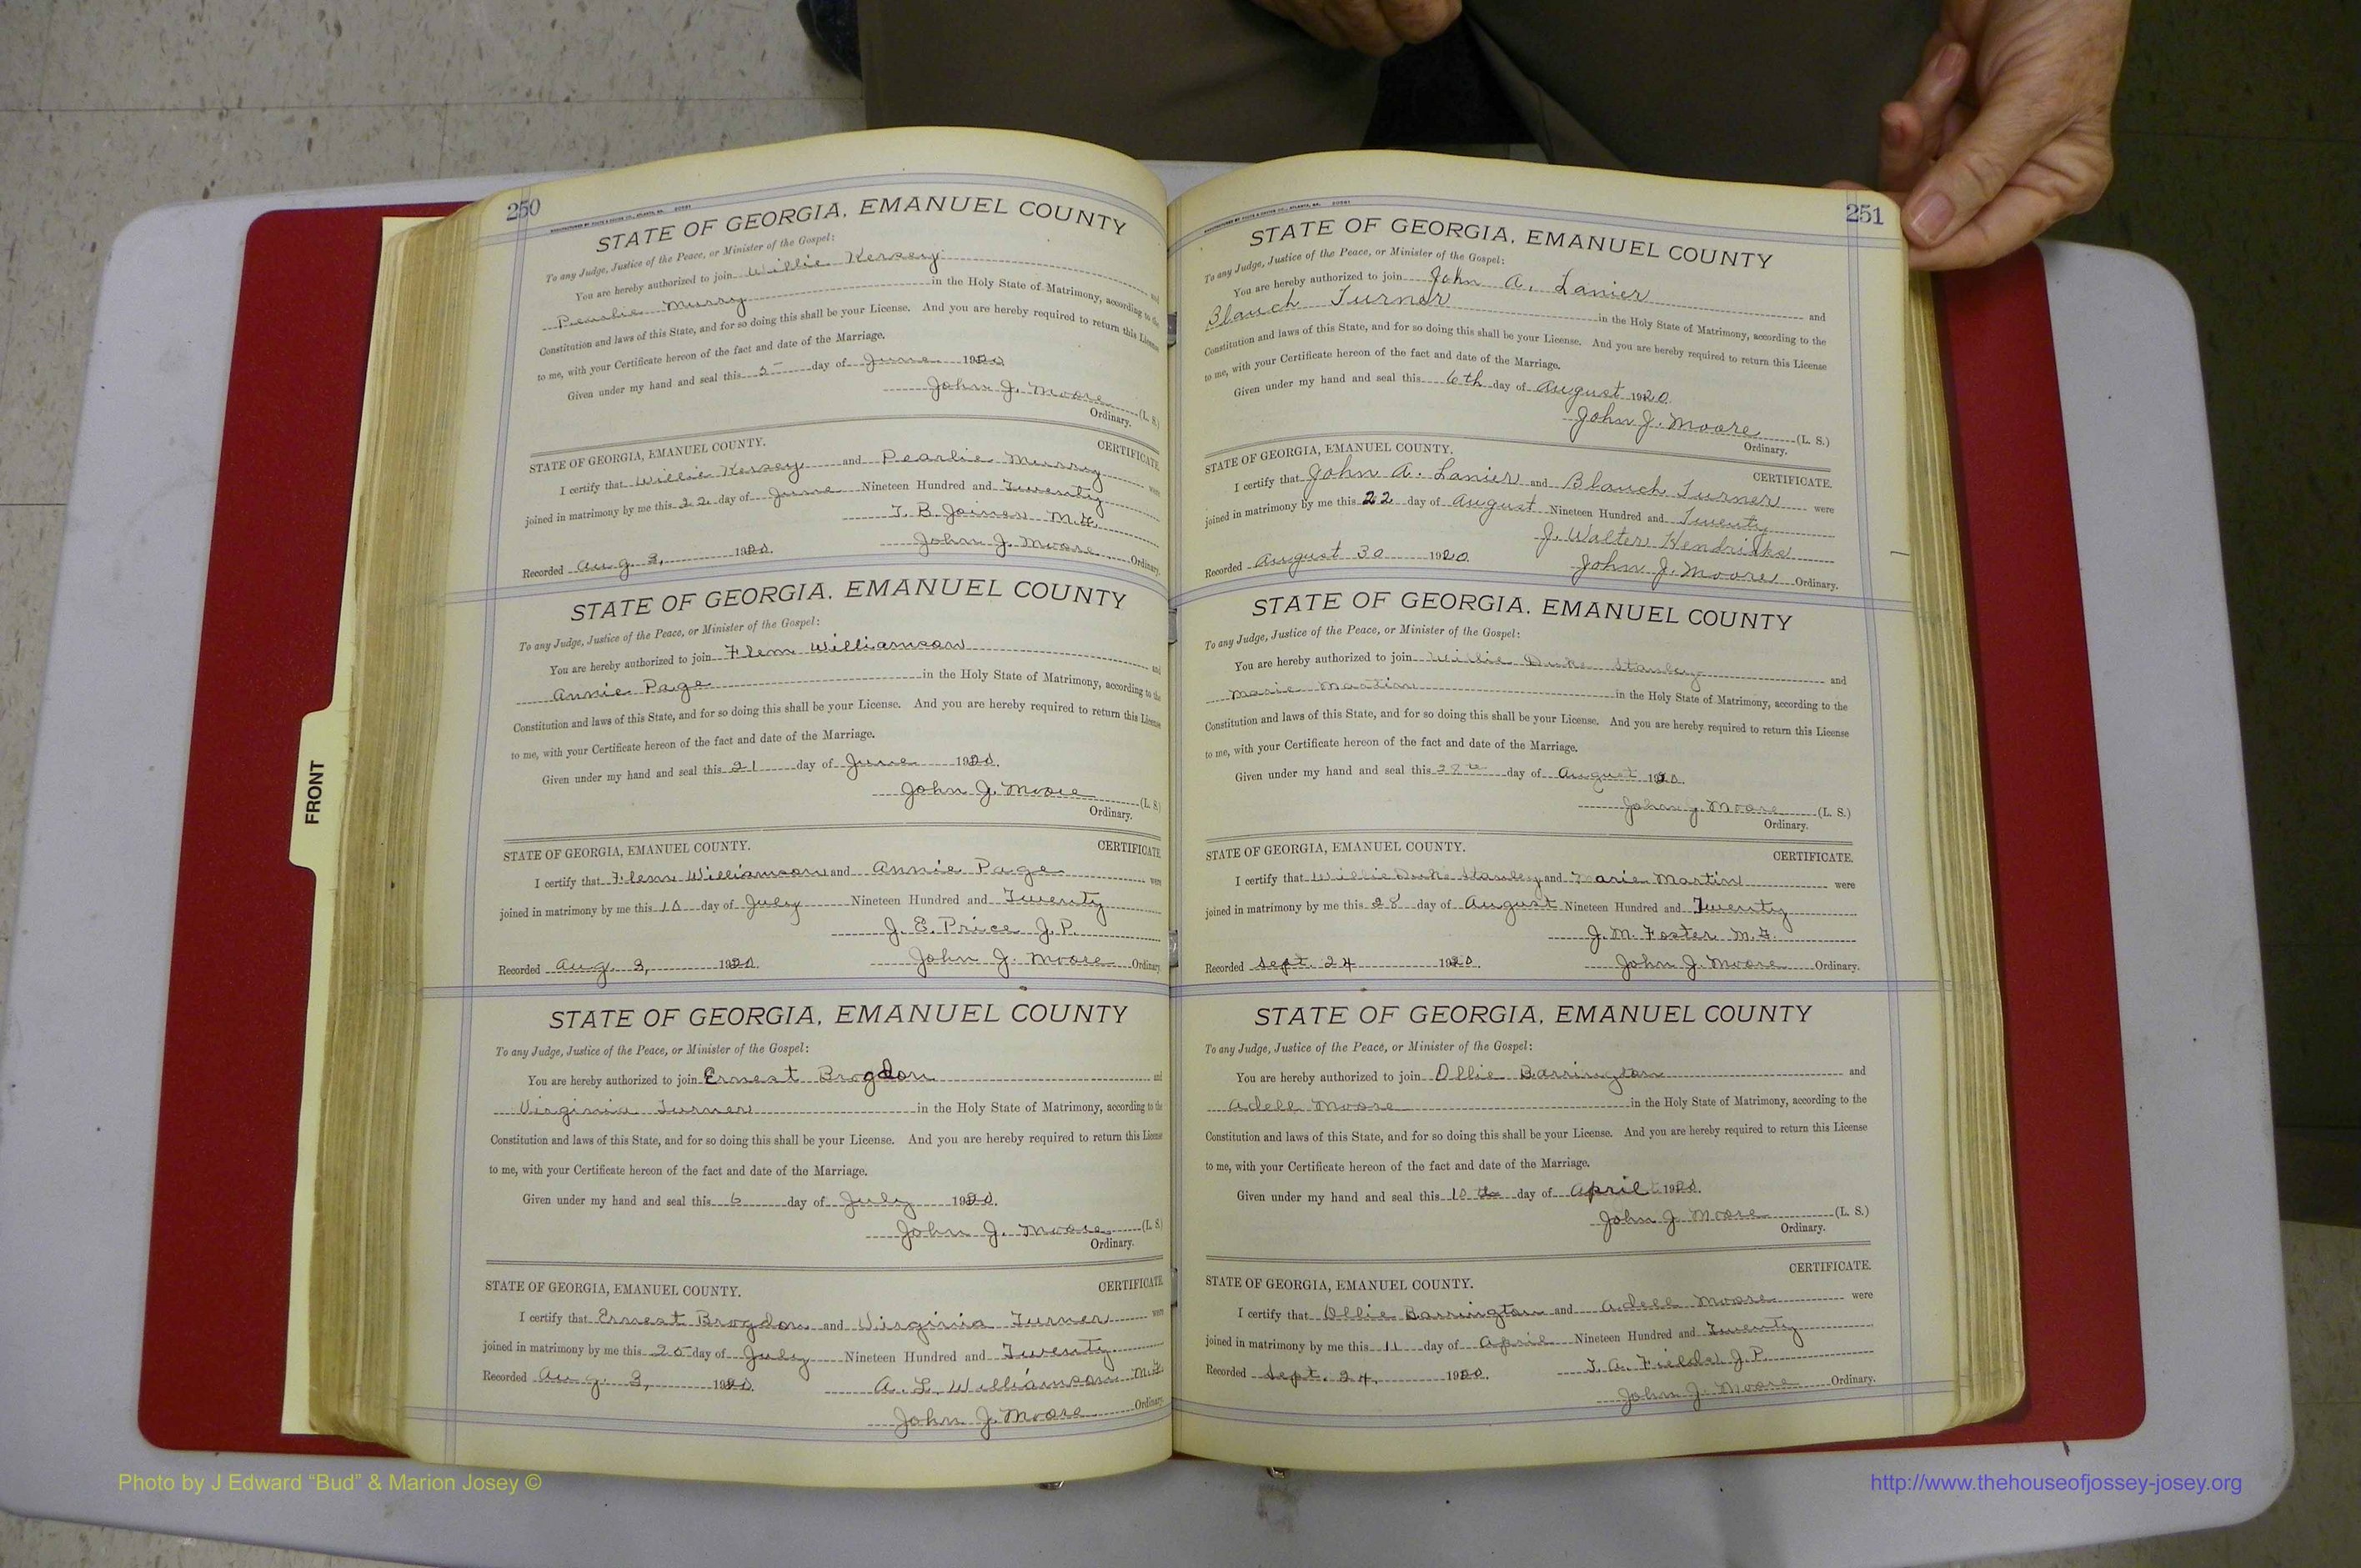 250
STATE OF GEORGIA, EMANUEL COUNTY
To any Judge, Justice of the Peace, or Minister of the Gospel:
You are hereby authorized to join Willie Kersey and
Pearlie Murray in the Holy State of Matrimony, according to the
Constitution and laws of this State, and for so doing this shall be your License. And you are hereby required to return this License
to me, with your Certificate hereon of the fact and date of the Marriage.
Given under my hand and seal this 5 day of June 1920
John J. Moore (L. S.)
Ordinary.
STATE OF GEORGIA, EMANUEL COUNTY. CERTIFICATE
I certify that Willie Kersey and Pearlie Murray were
joined in matrimony by me this 22 day of June Nineteen Hundred and Twenty
T. B. Joiner M.G.
Recorded Aug. 3, 1920. John J. Moore Ordinary.
STATE OF GEORGIA, EMANUEL COUNTY
To any Judge, Justice of the Peace, or Minister of the Gospel:
You are hereby authorized to join Flem Williamson and
Annie Page in the Holy State of Matrimony, according to the
Constitution and laws of this State, and for so doing this shall be your License. And you are hereby required to return this License
to me, with your Certificate hereon of the fact and date of the Marriage.
Given under my hand and seal this 21 day of June 1920.
John J. Moore (L. S.)
Ordinary.
STATE OF GEORGIA, EMANUEL COUNTY. CERTIFICATE
I certify that Flem Williamson and Annie Page were
joined in matrimony by me this 10 day of July Nineteen Hundred and Twenty
J. E. Price J.P.
Recorded Aug. 3, 1920. John J. Moore Ordinary.
STATE OF GEORGIA, EMANUEL COUNTY
To any Judge, Justice of the Peace, or Minister of the Gospel:
You are hereby authorized to join Ernest Brogdon and
Virginia Turner in the Holy State of Matrimony, according to the
Constitution and laws of this State, and for so doing this shall be your License. And you are hereby required to return this License
to me, with your Certificate hereon of the fact and date of the Marriage.
Given under my hand and seal this 6 day of July 1920.
John J. Moore (L. S.)
Ordinary.
STATE OF GEORGIA, EMANUEL COUNTY. CERTIFICATE
I certify that Ernest Brogdon and Virginia Turner were
joined in matrimony by me this 25 day of July Nineteen Hundred and Twenty
Recorded Aug. 3, 1920. A. L. Williamson M.G.
John J. Moore Ordinary.
251
STATE OF GEORGIA, EMANUEL COUNTY
To any Judge, Justice of the Peace, or Minister of the Gospel:
You are hereby authorized to join John A. Lanier and
Blanch Turner in the Holy State of Matrimony, according to the
Constitution and laws of this State, and for so doing this shall be your License. And you are hereby required to return this License
to me, with your Certificate hereon of the fact and date of the Marriage.
Given under my hand and seal this 6th day of August 1920.
John J. Moore (L. S.)
Ordinary.
STATE OF GEORGIA, EMANUEL COUNTY. CERTIFICATE.
I certify that John A. Lanier and Blanch Turner were
joined in matrimony by me this 22 day of August Nineteen Hundred and Twenty
J. Walter Hendricks
Recorded August 30 1920 John J. Moore Ordinary.
STATE OF GEORGIA, EMANUEL COUNTY
To any Judge, Justice of the Peace, or Minister of the Gospel:
You are hereby authorized to join Willie Duke Stanley and
Marie Martin in the Holy State of Matrimony, according to the
Constitution and laws of this State, and for so doing this shall be your License. And you are hereby required to return this License
to me, with your Certificate hereon of the fact and date of the Marriage.
Given under my hand and seal this day of August 1920.
John J. Moore (L. S.)
Ordinary.
STATE OF GEORGIA, EMANUEL COUNTY. CERTIFICATE.
I certify that Willie Duke Stanley and Marie Martin were
joined in matrimony by me this 28 day of August Nineteen Hundred and Twenty
J. M. Foster M.G.
Recorded Sept. 24 1920. John J. Moore Ordinary.
STATE OF GEORGIA, EMANUEL COUNTY
To any Judge, Justice of the Peace, or Minister of the Gospel:
You are hereby authorized to join Ollie Barrington and
Adell Moore in the Holy State of Matrimony, according to the
Constitution and laws of this State, and for so doing this shall be your License. And you are hereby required to return this License
to me, with your Certificate hereon of the fact and date of the Marriage.
Given under my hand and seal this 10th day of April 1920.
John J. Moore (L. S.)
Ordinary.
STATE OF GEORGIA, EMANUEL COUNTY. CERTIFICATE.
I certify that Ollie Barrington and Adell Moore were
joined in matrimony by me this 11 day of April Nineteen Hundred and Twenty
T. A. Fields J.P.
Recorded Sept. 24, 1920. John J. Moore Ordinary.
FRONT
Photo by J Edward “Bud” & Marion Josey ©
http://www.thehouseofjossey-josey.org